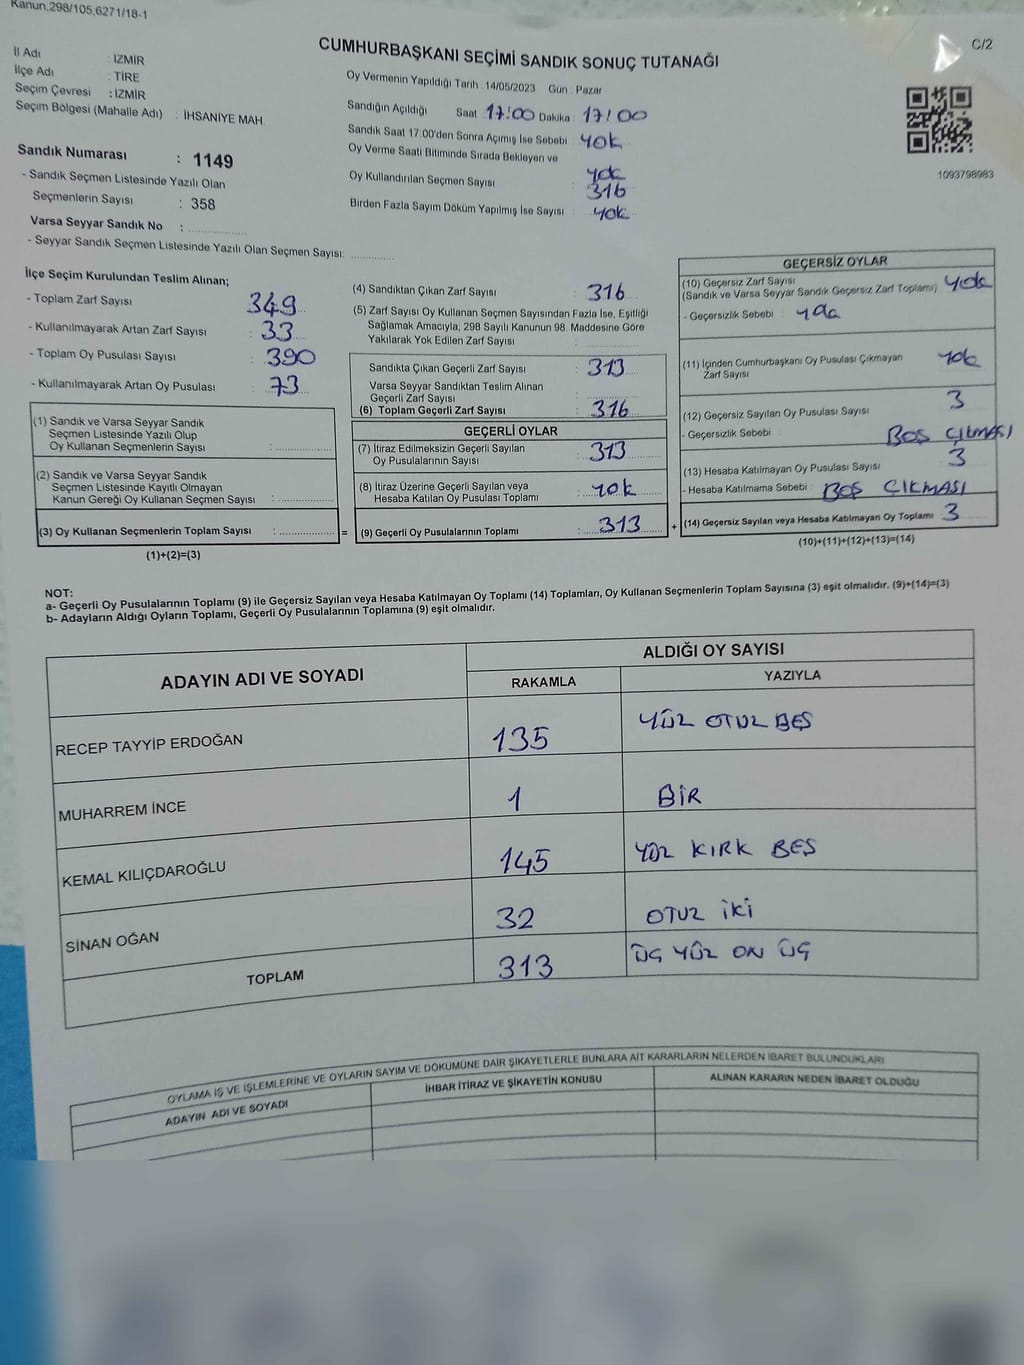 Kanun;298/105,6271/18-1
C/2
CUMHURBAŞKANI SEÇİMİ SANDIK SONUÇ TUTANAĞI
İl Adı : İZMİR
İlçe Adı : TİRE
Seçim Çevresi : İZMİR
Seçim Bölgesi (Mahalle Adı) : İHSANİYE MAH.
Sandık Numarası : 1149
- Sandık Seçmen Listesinde Yazılı Olan
Seçmenlerin Sayısı : 358
Varsa Seyyar Sandık No :
- Seyyar Sandık Seçmen Listesinde Yazılı Olan Seçmen Sayısı:
Oy Vermenin Yapıldığı Tarih : 14/05/2023 Gün : Pazar
Sandığın Açıldığı Saat : 17:00 Dakika : 17:00
Sandık Saat 17:00'den Sonra Açımış İse Sebebi : yok
Oy Verme Saati Bitiminde Sırada Bekleyen ve
yok
Oy Kullandırılan Seçmen Sayısı : 316
Birden Fazla Sayım Döküm Yapılmış İse Sayısı : yok
1093798983
İlçe Seçim Kurulundan Teslim Alınan;
- Toplam Zarf Sayısı : 349
- Kullanılmayarak Artan Zarf Sayısı : 33
- Toplam Oy Pusulası Sayısı : 390
- Kullanılmayarak Artan Oy Pusulası : 73
(1) Sandık ve Varsa Seyyar Sandık
Seçmen Listesinde Yazılı Olup
Oy Kullanan Seçmenlerin Sayısı :
(2) Sandık ve Varsa Seyyar Sandık
Seçmen Listesinde Kayıtlı Olmayan
Kanun Gereği Oy Kullanan Seçmen Sayısı :
(3) Oy Kullanan Seçmenlerin Toplam Sayısı : =
(1)+(2)=(3)
(4) Sandıktan Çıkan Zarf Sayısı : 316
(5) Zarf Sayısı Oy Kullanan Seçmen Sayısından Fazla İse, Eşitliği
Sağlamak Amacıyla; 298 Sayılı Kanunun 98. Maddesine Göre
Yakılarak Yok Edilen Zarf Sayısı :
Sandıkta Çıkan Geçerli Zarf Sayısı : 313
Varsa Seyyar Sandıktan Teslim Alınan
Geçerli Zarf Sayısı :
(6) Toplam Geçerli Zarf Sayısı : 316
GEÇERLİ OYLAR
(7) İtiraz Edilmeksizin Geçerli Sayılan
Oy Pusulalarının Sayısı : 313
(8) İtiraz Üzerine Geçerli Sayılan veya
Hesaba Katılan Oy Pusulası Toplamı : yok
(9) Geçerli Oy Pusulalarının Toplamı : 313 +
GEÇERSİZ OYLAR
(10) Geçersiz Zarf Sayısı
(Sandık ve Varsa Seyyar Sandık Geçersiz Zarf Toplamı) : yok
- Geçersizlik Sebebi :
(11) İçinden Cumhurbaşkanı Oy Pusulası Çıkmayan
Zarf Sayısı yok
(12) Geçersiz Sayılan Oy Pusulası Sayısı 3
- Geçersizlik Sebebi : BOŞ ÇIKMASI
(13) Hesaba Katılmayan Oy Pusulası Sayısı 3
- Hesaba Katılmama Sebebi : BOŞ ÇIKMASI
(14) Geçersiz Sayılan veya Hesaba Katılmayan Oy Toplamı : 3
(10)+(11)+(12)+(13)=(14)
NOT:
a- Geçerli Oy Pusulalarının Toplamı (9) ile Geçersiz Sayılan veya Hesaba Katılmayan Oy Toplamı (14) Toplamları, Oy Kullanan Seçmenlerin Toplam Sayısına (3) eşit olmalıdır. (9)+(14)=(3)
b- Adayların Aldığı Oyların Toplamı, Geçerli Oy Pusulalarının Toplamına (9) eşit olmalıdır.
ADAYIN ADI VE SOYADI
ALDIĞI OY SAYISI
RAKAMLA YAZIYLA
RECEP TAYYİP ERDOĞAN 135 YÜZ OTUZ BEŞ
MUHARREM İNCE 1 BİR
KEMAL KILIÇDAROĞLU 145 YÜZ KIRK BEŞ
SİNAN OĞAN 32 OTUZ İKİ
TOPLAM 313 ÜÇ YÜZ ON ÜÇ
OYLAMA İŞ VE İŞLEMLERİNE VE OYLARIN SAYIM VE DÖKÜMÜNE DAİR ŞİKAYETLERLE BUNLARA AİT KARARLARIN NELERDEN İBARET BULUNDUKLARI
ADAYIN ADI VE SOYADI
İHBAR İTİRAZ VE ŞİKAYETİN KONUSU
ALINAN KARARIN NEDEN İBARET OLDUĞU